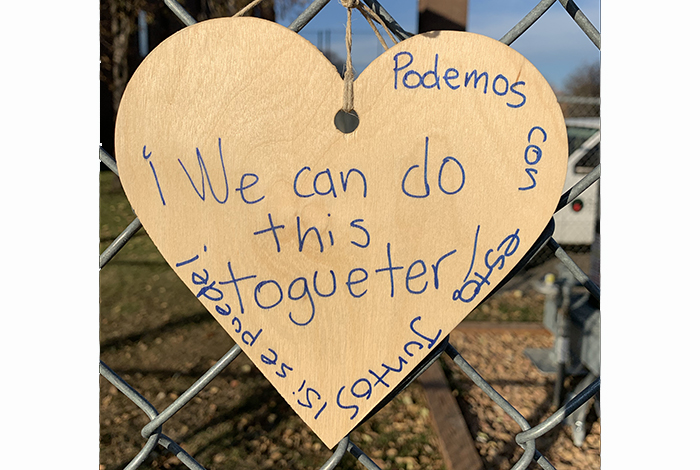 ¡We can do
this
togueter/
Podemos
con
esto
Juntos
¡si se puede!